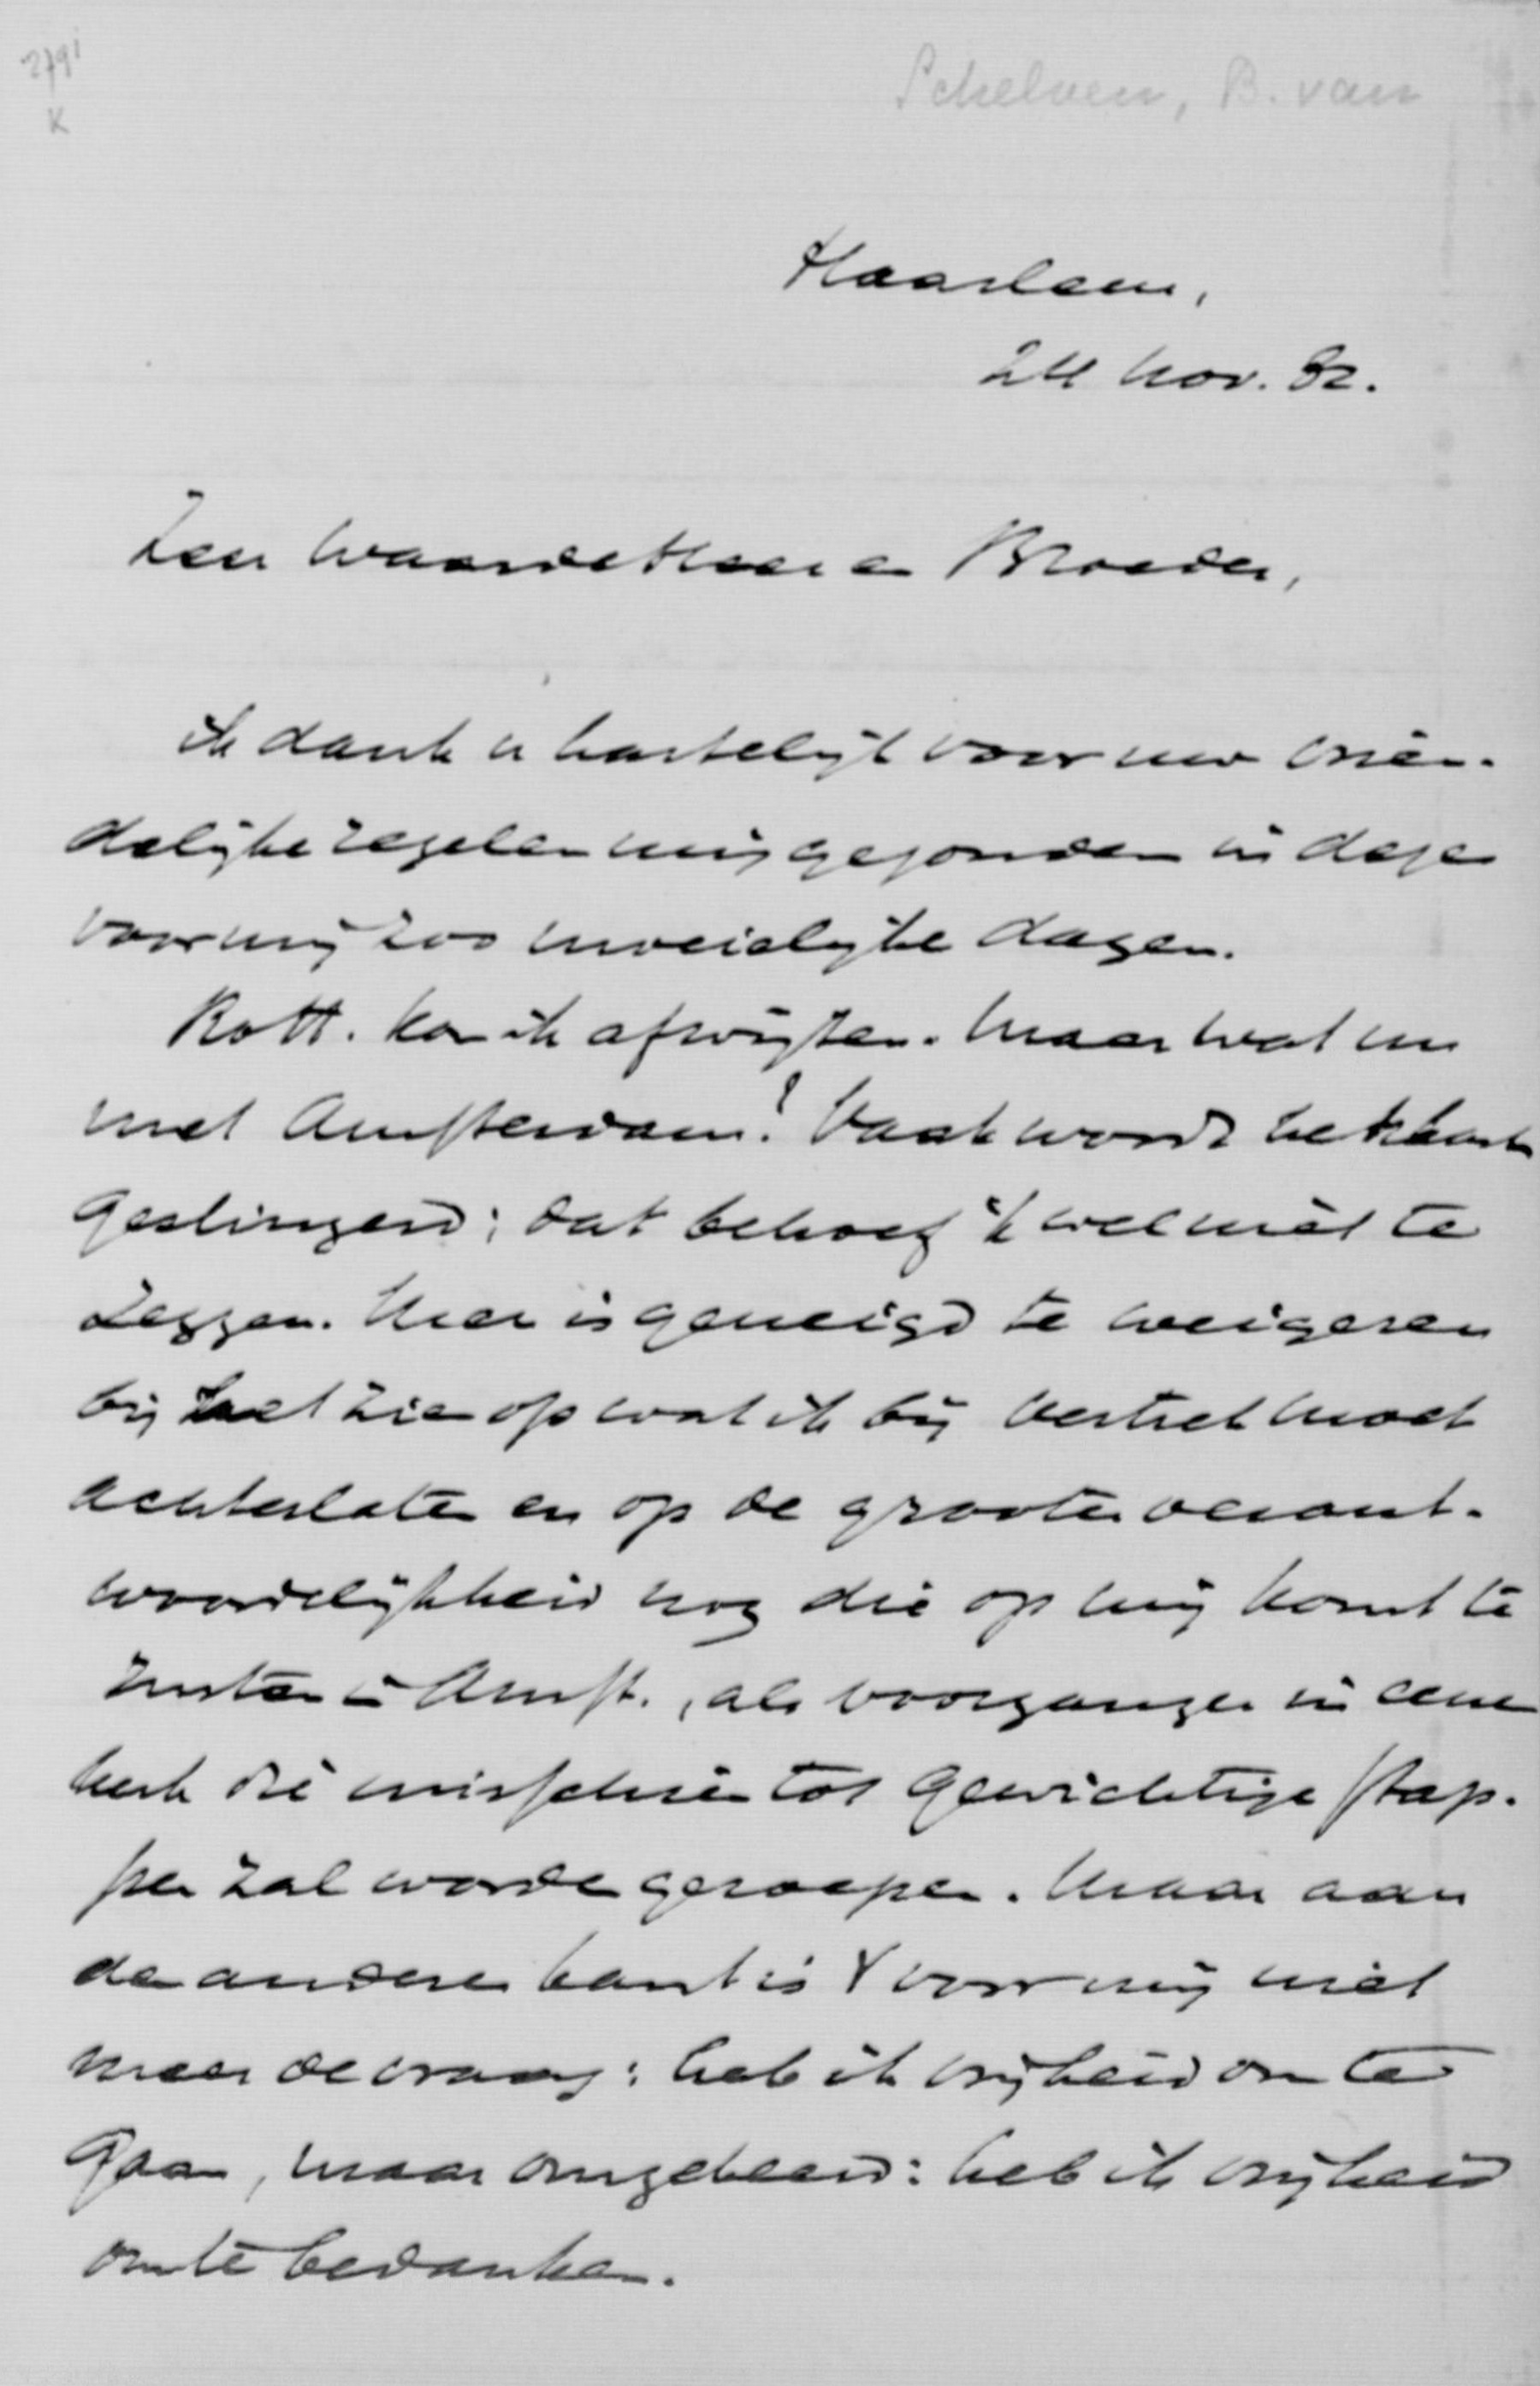 279i
K
Schelven, B. van
Haarlem,
24 Nov. 82.
Zeer Waarde Heer en Broeder,
ik dank u hartelijk voor uw vrien-
delijke regelen mij gezonden in deze
voor mij zoo moeielijke dagen.
Rott. kon ik afwijzen. Maar wat nu
met Amsterdam? Vaak wordt het hart
geslingerd; dat behoef ik wel niet te
zeggen. Meer is geneigd te weigeren
bij het zien op wat ik bij vertrek moet
achterlaten en op de grooter verant-
woordelijkheid nog die op mij komt te
rusten in Amst., als voorganger in eene
kerk die misschien tot gewichtige stap-
pen zal worden geroepen. Maar aan
de andere kant is 't voor mij niet
meer de vraag: heb ik vrijheid om te
gaan, maar omgekeerd: heb ik vrijheid
om te bedanken.